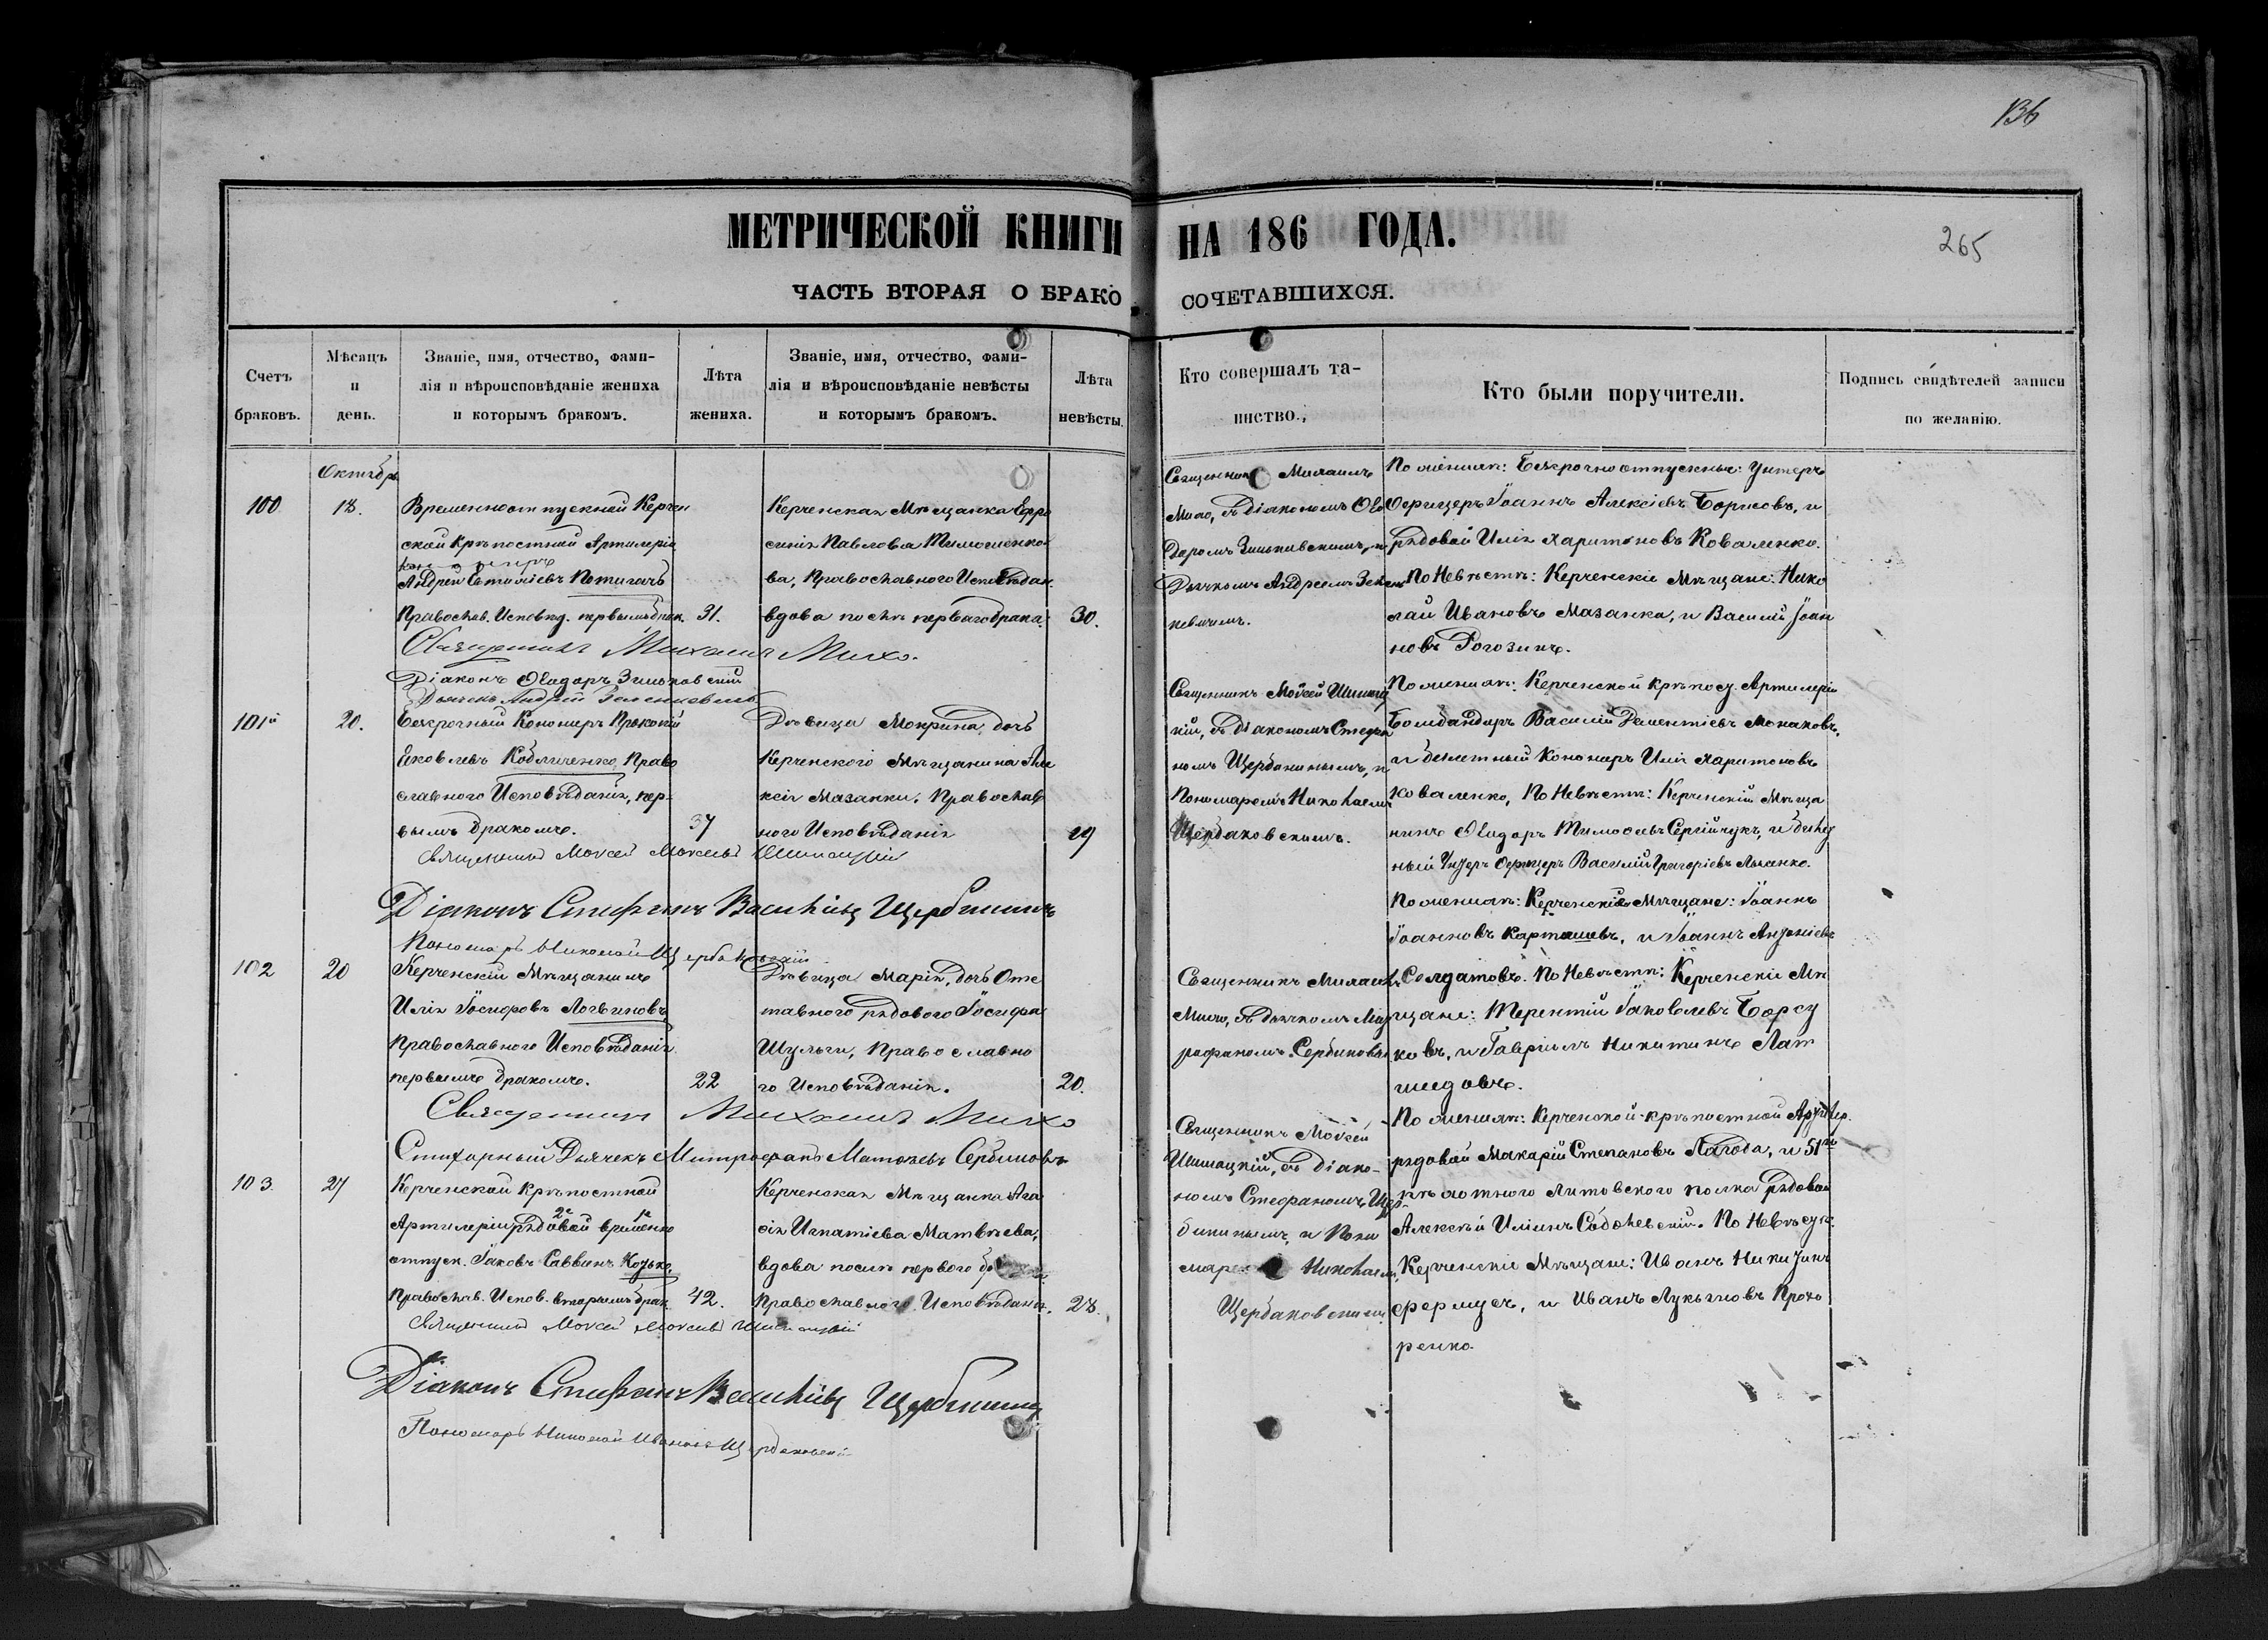 136
МЕТРИЧЕСКОЙ КНИГИ НА 186 ГОДА.
265
ЧАСТЬ ВТОРАЯ О БРАКОСОЧЕТАВШИХСЯ.
Счетъ
браковъ.
Мѣсяцъ
и
день.
Званіе, имя, отчество, фами-
лія и вѣроисповѣданіе жениха
и которымъ бракомъ.
Лѣта
жениха.
Званіе, имя, отчество, фами-
лія и вѣроисповѣданіе невѣсты
и которымъ бракомъ.
Лѣта
невѣсты.
Кто совершалъ та-
инство.
Кто были поручители.
Подпись свидѣтелей записи
по желанію.
Октябрь
100
18.
Временноотпускной Керчен
ской Крѣпостной Артилеріи
Андрей Евтихіевъ
Православ. Исповѣд. первымъ брак.
31.
Керченская Мѣщанка Ефро
синія Павлова Тимошенко
ва, Православного Исповѣдан.
вдова послѣ перваго брака.
30.
Священникъ Михаилъ
Михо, съ діакономъ Ѳео
доромъ Зиньковскимъ, и
Дьячкомъ Андреемъ Зелен
кевичемъ.
По женихѣ: Безсрочно отпускные: Унтеръ
Офицеръ Іоаннъ Алексіевъ Борисовъ, и
рядовой Илія Харитоновъ Коваленко.
По Невѣстѣ: Керченскіе Мѣщане: Нико
лай Ивановъ Мазанка, и Василій Іоан
новъ Рогозинъ.
Священникъ Михаилъ Михо.
Діаконъ Ѳеодоръ Зиньковскій
Дьячекъ Андрей Зеленкевичъ
101й
20.
Безсрочный Кононеръ Прокопій
Яковлевъ Кобличенко, Право
славного Исповѣданія, пер-
вымъ бракомъ.
37
Дѣвица Мокрина, дочь
Керченского Мѣщанина Але
ксія Мазанки, Православ
ного Исповѣданія
19
Священникъ Моѵсей Шпиац
кій, съ діакономъ Стефа
номъ Щербининымъ, и
Пономаремъ Николаемъ
Щербаковскимъ.
По женихѣ: Керченской крѣпост. Артилеріи
Бомбандиръ Василій Дементіевъ Монаковъ,
и билетный Кононеръ Илія Харитоновъ
Коваленко, По Невѣстѣ: Керченскій Мѣща
нинъ Ѳеодоръ Тимоѳевъ Сергійчукъ, и билет
ный Унтеръ Офицеръ Василій Григоріевъ Лысенко.
Священникъ Моѵсей Моѵсеевъ
Діаконъ Стефанъ Васильевъ Щербининъ
Пономарь Николай Щербаковскій
102
20
Керченскій Мѣщанинъ
Илія Іосифовъ Логвиновъ,
Православного Исповѣданія
первымъ бракомъ.
22
Дѣвица Марія, дочь Отс
тавного рядового Іосифа
Шульги, Православно
го Исповѣданія.
20.
Священникъ Михаилъ
Михо, съ дьячкомъ Мит
рофаномъ Сербиновымъ
По женихѣ: Керченскіе Мѣщане: Іоаннъ
Іоанновъ Карташевъ, и Іоаннъ Антоніевъ
Солдатовъ. По Невѣстѣ: Керченскіе Мѣ
щане: Терентій Іаковлевъ Борсу
ковъ, и Гавріилъ Никитинъ
Священникъ Михаилъ Михо
Стихарный Дьячекъ Митрофанъ Матвѣевъ Сербиновъ
103.
27
Керченской крѣпостной
Артилеріи рядовой временно
отпуск. Іаковъ Саввинъ Козько,
Православ. Испов. вторымъ брак.
42.
Керченская Мѣщанка Ага
сія Игнатіева Матвѣева,
вдова послѣ первого
Православного Исповѣданія.
28.
Священникъ Моѵсей
съ діако-
номъ Стефаномъ Щер-
бининымъ, и Поно
маремъ Николаемъ
Щербаковскимъ
По женихѣ: Керченской крѣпостной Артилер.
рядовой Макарій Степановъ Лагода, и 51го
пѣхотного Литовского полка рядовой
Алексѣй Иліинъ Соболевскій. По Невѣстѣ:
Керченскіе Мѣщане: Иванъ Никитинъ
и Иванъ Лукьяновъ Прохо
ренко.
Священникъ Моѵсей Моѵсеевъ
Діаконъ Стефанъ Васильевъ Щербининъ
Пономарь Николай Ивановъ Щербаковскій